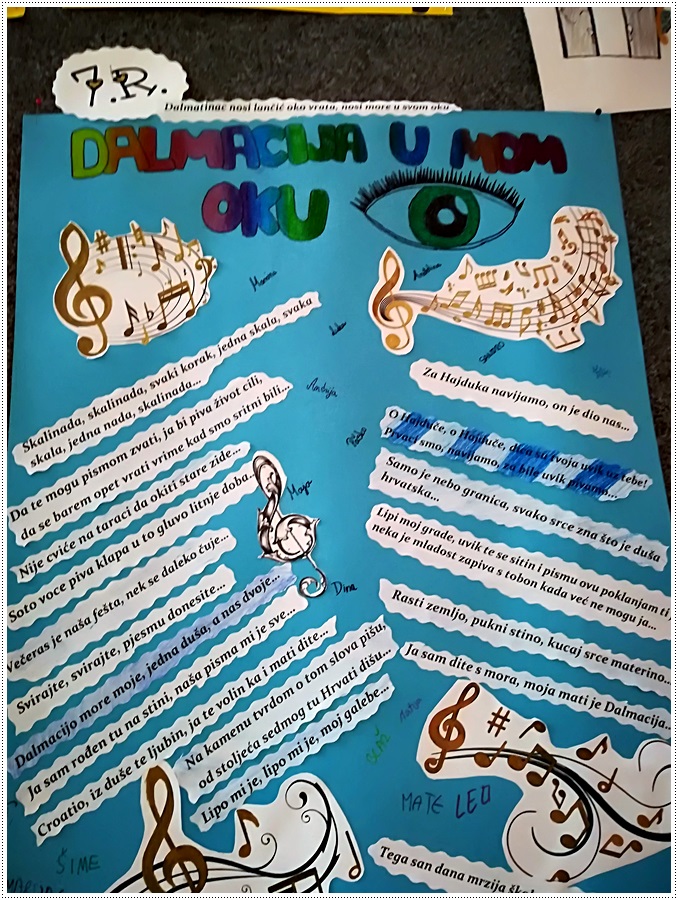 7.R.
Dalmatinac nosi lančić oko vrata, nosi more u svom oku
DALMACIJA U MOM
OKU
Skalinada, skalinada, svaki korak, jedna skala, svaka
skala, jedna nada, skalinada...
Da te mogu pismom zvati, ja bi piva život cili,
da se barem opet vrati vrime kad smo sritni bili...
Nije cviće na taraci da okiti stare zide...
Soto voce piva klapa u to gluvo litnje doba...
Večeras je naša fešta, nek se daleko čuje...
Svirajte, svirajte, pjesmu donesite...
Dalmacijo more moje, jedna duša, a nas dvoje...
Ja sam rođen tu na stini, naša pisma mi je sve...
Croatio, iz duše te ljubin, ja te volin ka i mati dite...
Na kamenu tvrdom o tom slova pišu,
od stoljeća sedmog tu Hrvati dišu...
Lipo mi je, lipo mi je, moj galebe...
Andrija
Maja
Dina
Za Hajduka navijamo, on je dio nas...
O Hajduče, o Hajduče, dica su tvoja uvik uz tebe!
prvaci smo, navijamo, za bile uvik pivamo...
Samo je nebo granica, svako srce zna što je duša
hrvatska...
Lipi moj grade, uvik te se sitin i pismu ovu poklanjam ti,
neka je mladost zapiva s tobon kada već ne mogu ja...
Rasti zemljo, pukni stino, kucaj srce materino...
Ja sam dite s mora, moja mati je Dalmacija...
MATE LEO
ŠIME
Tega san dana mrzija